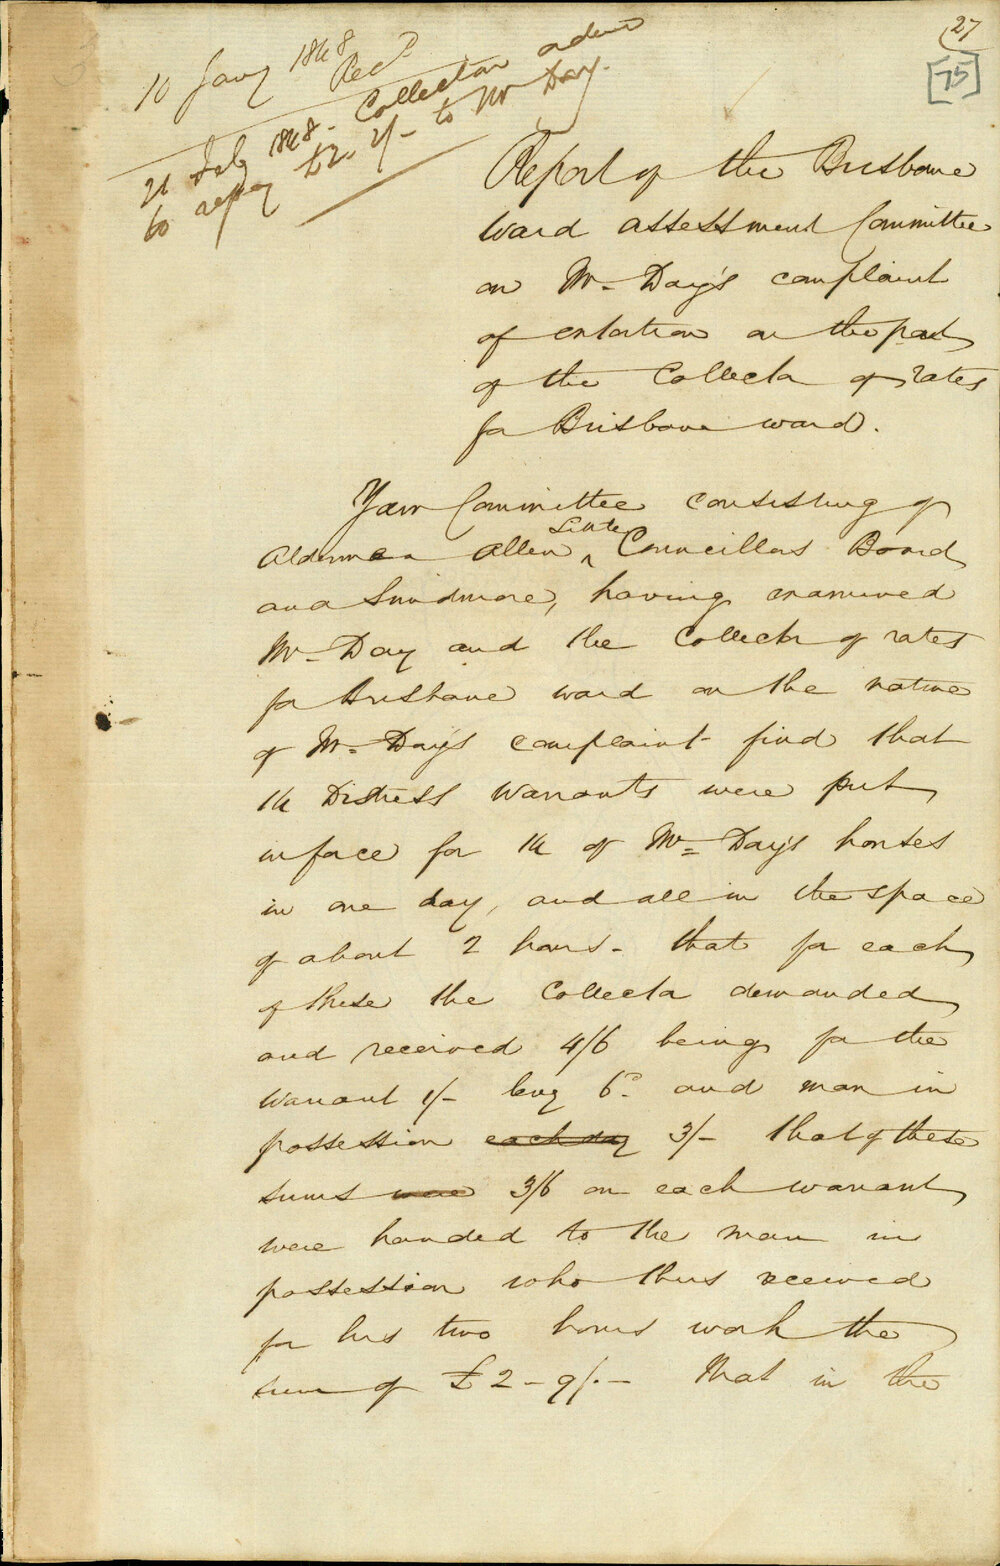 27
[75]
10 Jany 1848
Recd
21 Feby 1848 - Collector ordered
to repay £2. 2/- to Mr Day.
Report of the Brisbane
Ward assessment Committee
on Mr Day's complaint
of extortion on the part
of the Collector of rates
for Brisbane ward.
Your Committee consisting of
Alderman Allen, Little Councillors Board
and Smidmore, having examined
Mr Day and the Collector of rates
for Brisbane ward on the nature
of Mr Day's complaint find that
14 Distress Warrants were put
in force for 14 of Mr Day's houses
in one day, and all in the space
of about 2 hours - that for each
of these the Collector demanded
and received 4/6 being for the
Warrant 1/- levy 6d and man in
possession each day 3/- that of these
sums were 3/6 on each warrant
were handed to the man in
possession who thus received
for his two hours work the
sum of £2-9/.- That in the